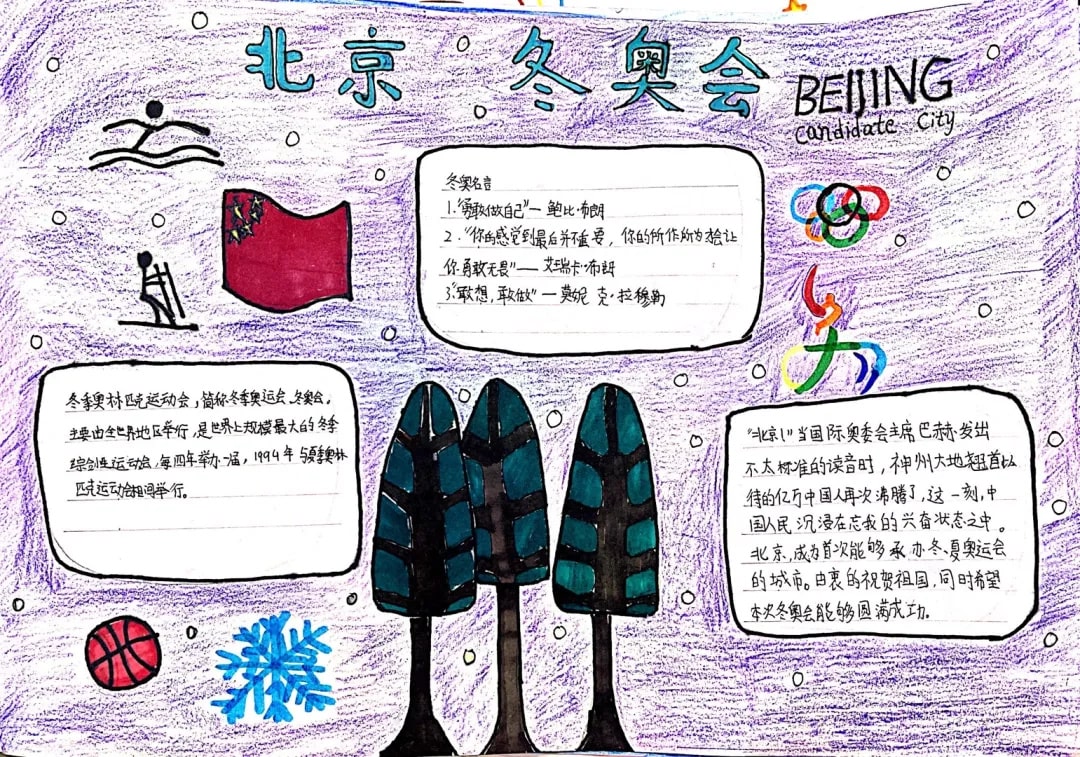 北京 冬奥会
BEIJING
Candidate City
冬奥名言
1.“勇敢做自己”— 鲍比·布朗
2.“你的感觉到最后并不重要，你的所作所为才会让
你勇敢无畏”—— 艾瑞卡·布朗
3.“敢想，敢做”— 莫妮 克·拉穆勒
冬季奥林匹克运动会，简称冬季奥运会、冬奥会，
主要由全世界地区举行，是世界上规模最大的冬季
综合性运动会，每四年举办一届，1994年与夏季奥林
匹克运动会相间举行。
“北京！”当国际奥委会主席巴赫发出
不太标准的读音时，神州大地翘首以
待的亿万中国人再次沸腾了，这一刻，中
国人民沉浸在忘我的兴奋状态之中。
北京，成为首次能够承办冬、夏奥运会
的城市。由衷的祝贺祖国，同时希望
本次冬奥会能够圆满成功。